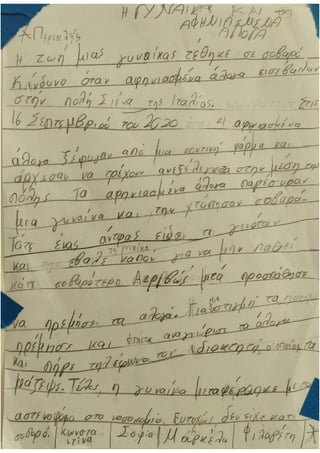 Η ΓΥΝΑΙΚΑ ΚΑΙ ΤΑ
ΑΦΗΝΙΑΣΜΕΝΑ
ΑΛΟΓΑ
*Περικλής
Η ζωή μιας γυναίκας τέθηκε σε σοβαρό
κίνδυνο όταν αφηνιασμένα άλογα εισέβαλαν
στην πόλη Σιένα της Ιταλίας. Στις
16 Σεπτεμβριού του 2020 4 αφηνιασμένα
άλογα ξέφυγαν από μια κοντινή φάρμα και
άρχισαν να τρέχουν ανεξέλεγκτα στην μέση της
πόλης. Τα αφηνιασμένα άλογα παρέσυραν
μια γυναίκα και την χτύπησαν σοβαρά.
Τότε ένας άντρας είδε τι γινόταν
και έβαλε κάπου για να μην πάθει
κάτι σοβαρότερο. Ακριβώς μετά προσπάθησε
να ηρεμήσει τα άλογα. Κάποια στιγμή τα
ηρέμησε και έπειτα αναγνώρισε τα άλογα
και πήρε τηλέφωνο τον ιδιοκτήτη, ο οποίος τα
μάζεψε. Τέλος, η γυναίκα μεταφέρθηκε με το
ασθενοφόρο στο νοσοκομείο. Ευτυχώς δεν είχε κάτι
σοβαρό! Κωνστα ντίνα Σοφία Μαρκέλα Φιλαρέτη *